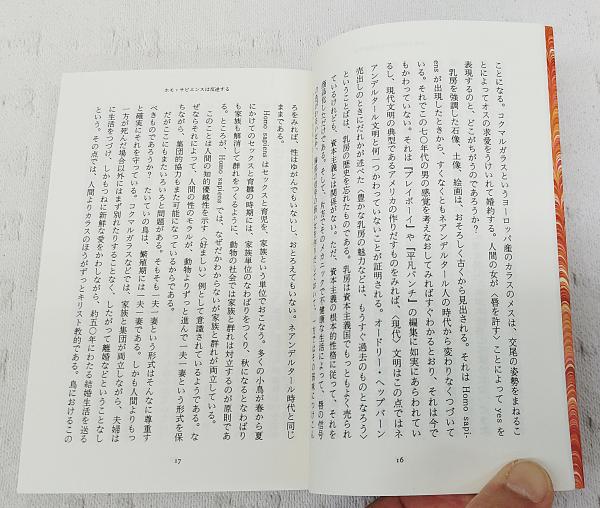 ことになる。コクマルガラスというヨーロッパ産のカラスのメスは、交尾の姿勢をまねるこ
とによってオスの求愛をうけいれて婚約する。人間の女が〈唇を許す〉ことによって yes を
表現するのと、どこがちがうのであろうか?
乳房を強調した石像、土像、絵画は、おそろしく古くから見出される。それは Homo sapi-
ens が出現したときから、すくなくともネアンデルタール人の時代から変わりなくつづいて
いる。それでこの七〇年代の男の感覚を考えなおしてみればすぐわかるとおり、それは今で
もかわっていない。それは『プレイボーイ』や『平凡パンチ』の編集に如実にあらわれてい
るし、現代文明の典型であるアメリカの作りだすものをみれば、〈現代〉文明はこの点ではネ
アンデルタール文明と何一つかわっていないことが証明される。オードリー・ヘップバーン
売出しのときにだれかが述べた〈豊かな乳房の魅力などは、もうすぐ過去のものとなろう〉
ということばは、乳房の歴史を忘れたものである。乳房は資本主義国でもっともよく売られ
ているけれども、資本主義とは関係がない。ただ、資本主義の根本的性格に従って、それを
16
ホモ・サピエンスは反逆する
ろをみれば、性はゆがんでもいないし、おとろえてもいない。ネアンデルタール時代と同じ
ままである。
Homo sapiens はセックスと育児を、家族という単位でおこなう。多くの小鳥が春から夏
にかけてのセックスと育雛の時期には、家族単位のなわばりをつくり、秋になるとなわばり
も家族も解消して群れをつくるように、動物の社会では家族と群れは対立するのが原則であ
る。ところが、Homo sapiens では、なぜだかわからないが家族と群れが両立している。
このことは人間の知的優越性を示す〈好ましい〉例として意識されているようである。な
ぜならそれによって、人間の性のモラルが、動物よりずっと進んで一夫一妻という形式を保
ちながら、集団的協力もまた可能になっているからである。
だがここにもまたいろいろと問題がある。そもそも一夫一妻という形式はそんなに尊重す
べきものであろうか? たいていの鳥は、繁殖期には一夫一妻である。しかも人間よりもっ
と確実にそれを守っている。コクマルガラスなどでは、家族と集団が両立しながら、夫婦は
一方が死んだ場合以外にはまず別れたりすることなく、したがって離婚などということなし
に生活をつづけ、しかもつねに新鮮な愛をかわしながら、約五〇年にわたる結婚生活を送る
という。その点では、人間よりカラスのほうがずっとキリスト教的である。鳥におけるこの
17